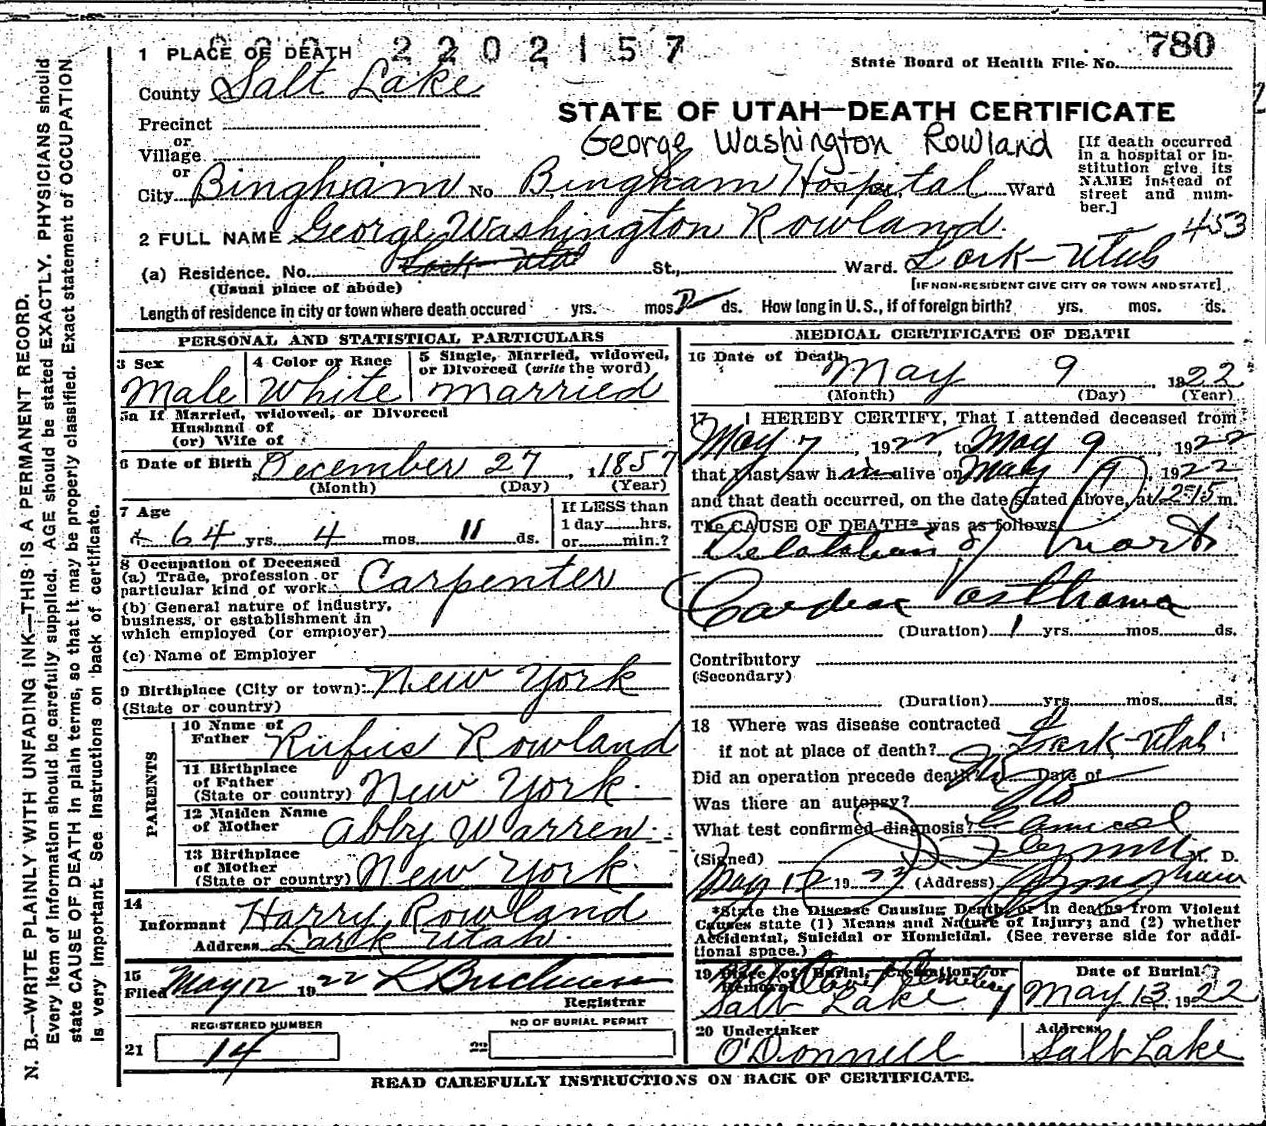 2202157
780
1 PLACE OF DEATH
State Board of Health File No.
County Salt Lake
STATE OF UTAH—DEATH CERTIFICATE
Precinct
or
Village
or
George Washington Rowland
[If death occurred in a hospital or institution give its NAME instead of street and number.]
City Bingham No. Bingham Hospital Ward
2 FULL NAME George Washington Rowland
453
(a) Residence. No. Lark Utah St., Ward. Lark Utah
(Usual place of abode)
[IF NON-RESIDENT GIVE CITY OR TOWN AND STATE]
Length of residence in city or town where death occured yrs. mos. ds. How long in U.S., if of foreign birth? yrs. mos. ds.
PERSONAL AND STATISTICAL PARTICULARS
3 Sex 4 Color or Race 5 Single, Married, widowed, or Divorced (write the word)
Male White married
5a If Married, widowed, or Divorced
Husband of
(or) Wife of
6 Date of Birth December 27, 1857
(Month) (Day) (Year)
7 Age
64 yrs. 4 mos. 11 ds.
If LESS than
1 day hrs.
or min.?
8 Occupation of Deceased
(a) Trade, profession or particular kind of work Carpenter
(b) General nature of industry, business, or establishment in which employed (or employer)
(c) Name of Employer
9 Birthplace (City or town) New York
(State or country)
PARENTS
10 Name of Father Rufus Rowland
11 Birthplace of Father (State or country) New York
12 Maiden Name of Mother Abby Warren
13 Birthplace of Mother (State or country) New York
14
Informant Harry Rowland
Address Lark Utah
15
Filed May 12 1922 L Buchman
Registrar
REGISTERED NUMBER
21 14
NO OF BURIAL PERMIT
22
MEDICAL CERTIFICATE OF DEATH
16 Date of Death May 9 1922
(Month) (Day) (Year)
17 I HEREBY CERTIFY, That I attended deceased from
May 7, 1922 to May 9, 1922
that I last saw him alive on May 9, 1922
and that death occurred, on the date stated above, at 12-15 m.
The CAUSE OF DEATH* was as follows
Delatation of heart
Cardiac asthama
(Duration) 1 yrs. mos. ds.
Contributory
(Secondary)
(Duration) yrs. mos. ds.
18 Where was disease contracted
if not at place of death? Lark-Utah
Did an operation precede death? No Date of
Was there an autopsy? No
What test confirmed diagnosis?
(Signed) M. D.
May 12 1922 (Address) Bingham
*State the Disease Causing Death, or in deaths from Violent Causes state (1) Means and Nature of Injury; and (2) whether Accidental, Suicidal or Homicidal. (See reverse side for additional space.)
19 Place of Burial, Cremation, or Removal Mt Olivet Cemetery
Salt Lake
Date of Burial
May 13, 1922
20 Undertaker
O'Donnell
Address
Salt Lake
READ CAREFULLY INSTRUCTIONS ON BACK OF CERTIFICATE.
N. B.—WRITE PLAINLY WITH UNFADING INK—THIS IS A PERMANENT RECORD.
Every item of information should be carefully supplied. AGE should be stated EXACTLY. PHYSICIANS should
state CAUSE OF DEATH in plain terms, so that it may be properly classified. Exact statement of OCCUPATION
is very important. See instructions on back of certificate.